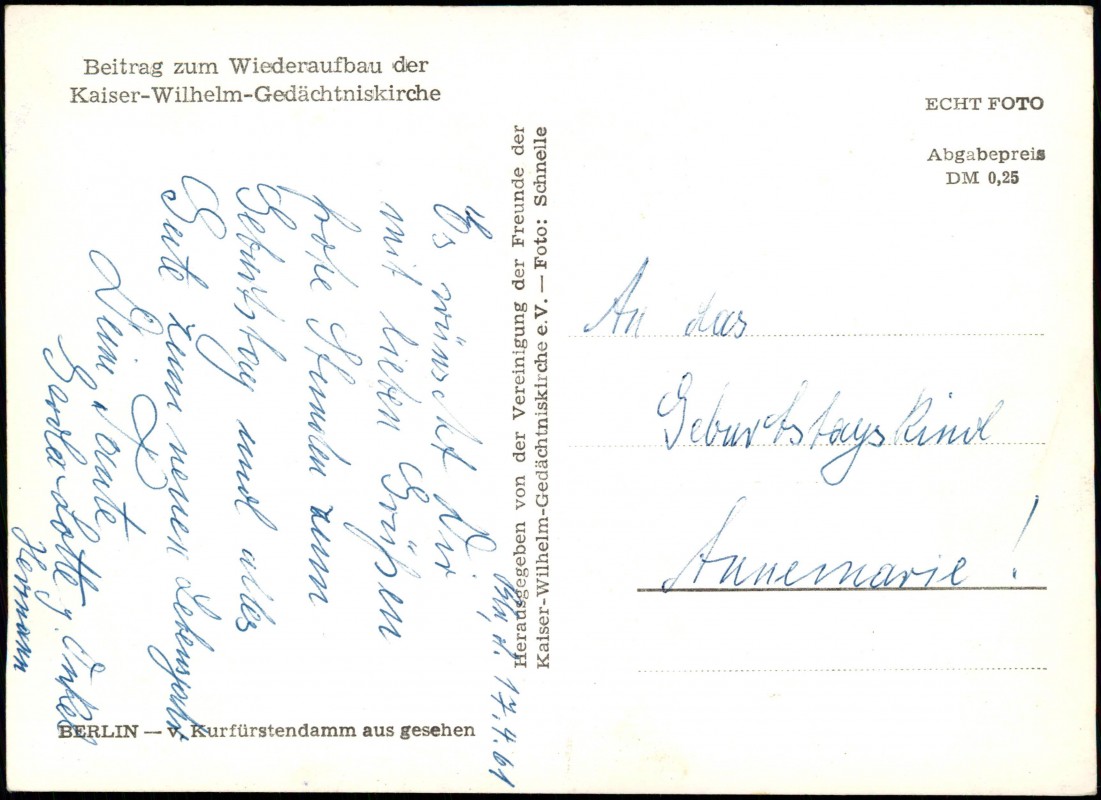 Beitrag zum Wiederaufbau der
Kaiser-Wilhelm-Gedächtniskirche
Bln, d. 17.4.61
Es wünscht Dir
mit lieben Grüßen
frohe Stunden zum
Geburtstag und alles
Gute zum neuen Lebensjahr
Deine Tante
Gerda-Lotte u. Onkel
Hermann
BERLIN — v. Kurfürstendamm aus gesehen
Herausgegeben von der Vereinigung der Freunde der
Kaiser-Wilhelm-Gedächtniskirche e.V. — Foto: Schnelle
ECHT FOTO
Abgabepreis
DM 0,25
An das
Geburtstagskind
Annemarie!